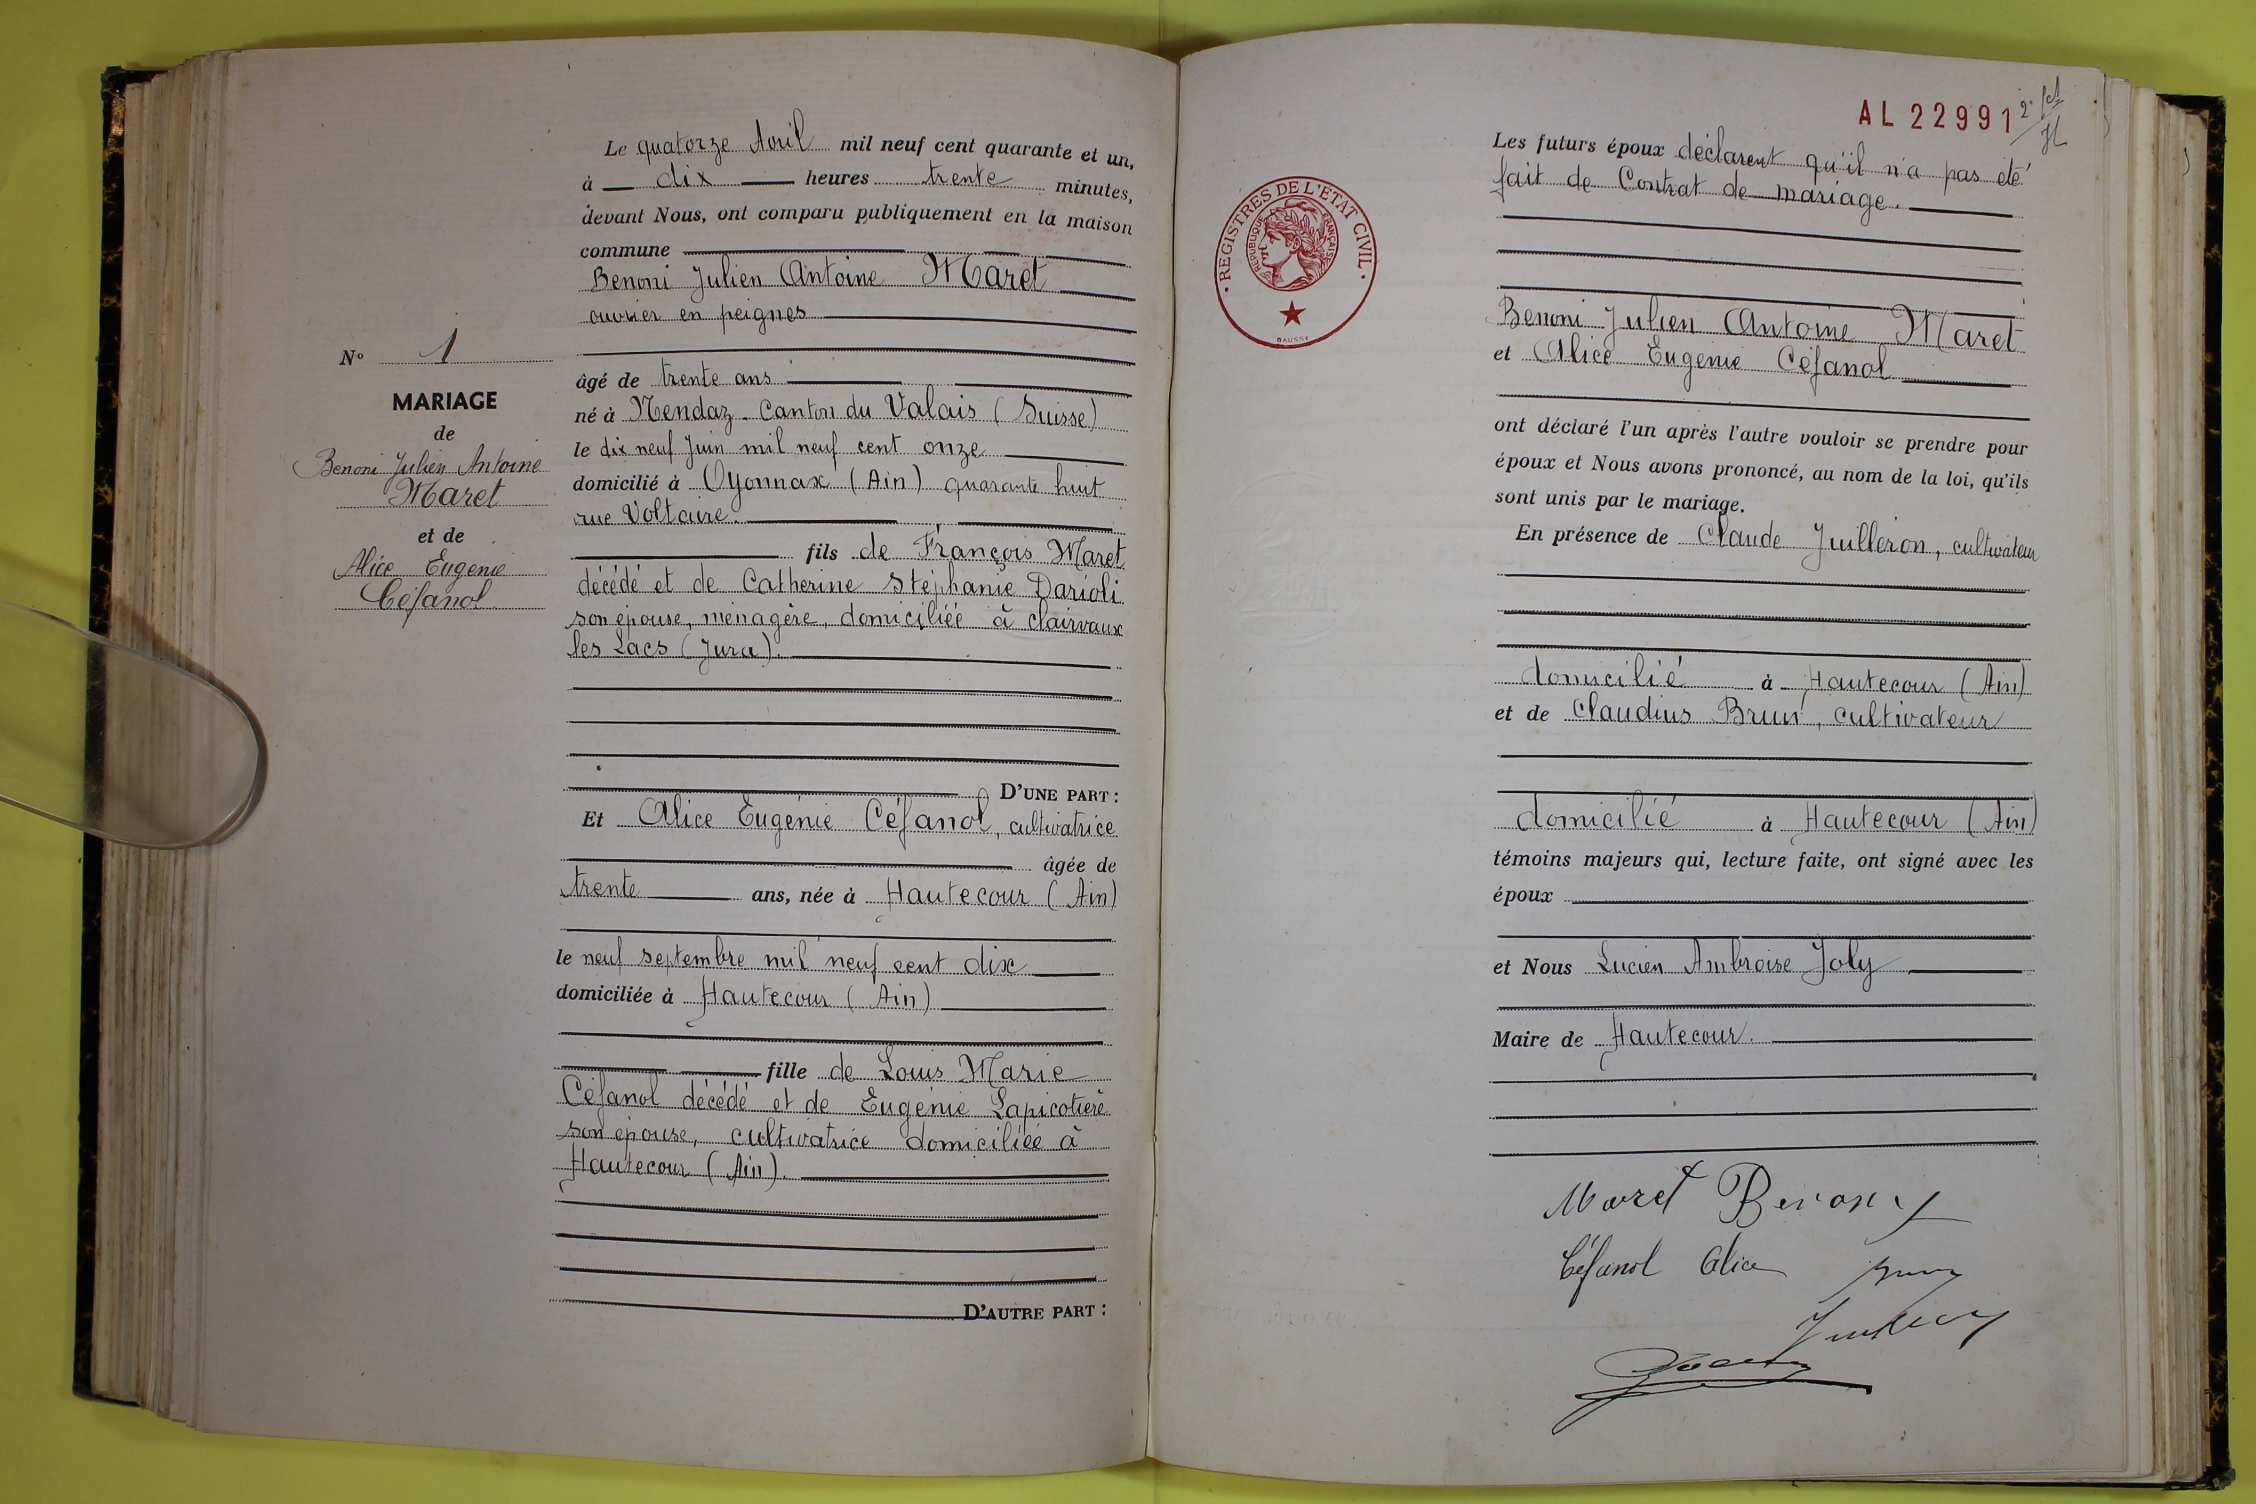 Le quatorze Avril mil neuf cent quarante et un,
à dix heures trente minutes,
devant Nous, ont comparu publiquement en la maison
commune
Benoni Julien Antoine Maret
ouvrier en peignes
âgé de trente ans
né à Nendaz Canton du Valais (Suisse)
le dix neuf Juin mil neuf cent onze
domicilié à Oyonnax (Ain) quarante huit
rue Voltaire.
fils de François Maret
décédé et de Catherine Stéphanie Darioli
son épouse, ménagère, domiciliée à Clairvaux
les Lacs (Jura).
D'UNE PART :
Et Alice Eugénie Céfanol, cultivatrice
âgée de
trente ans, née à Hautecour (Ain)
le neuf septembre mil neuf cent dix
domiciliée à Hautecour (Ain)
fille de Louis Marie
Céfanol décédé et de Eugénie Lapicotière
son épouse, cultivatrice domiciliée à
Hautecour (Ain).
D'AUTRE PART :
No 1
MARIAGE
de
Benoni Julien Antoine
Maret
et de
Alice Eugénie
Céfanol
AL 22991
Les futurs époux déclarent qu'il n'a pas été
fait de Contrat de mariage.
REGISTRES DE L'ETAT CIVIL
REPUBLIQUE FRANÇAISE
Benoni Julien Antoine Maret
et Alice Eugénie Céfanol
ont déclaré l'un après l'autre vouloir se prendre pour
époux et Nous avons prononcé, au nom de la loi, qu'ils
sont unis par le mariage.
En présence de Claude Juilleron, cultivateur
domicilié à Hautecour (Ain)
et de Claudius Brun, cultivateur
domicilié à Hautecour (Ain)
témoins majeurs qui, lecture faite, ont signé avec les
époux
et Nous Lucien Ambroise Joly
Maire de Hautecour.
Maret Benony
Céfanol Alice Brun